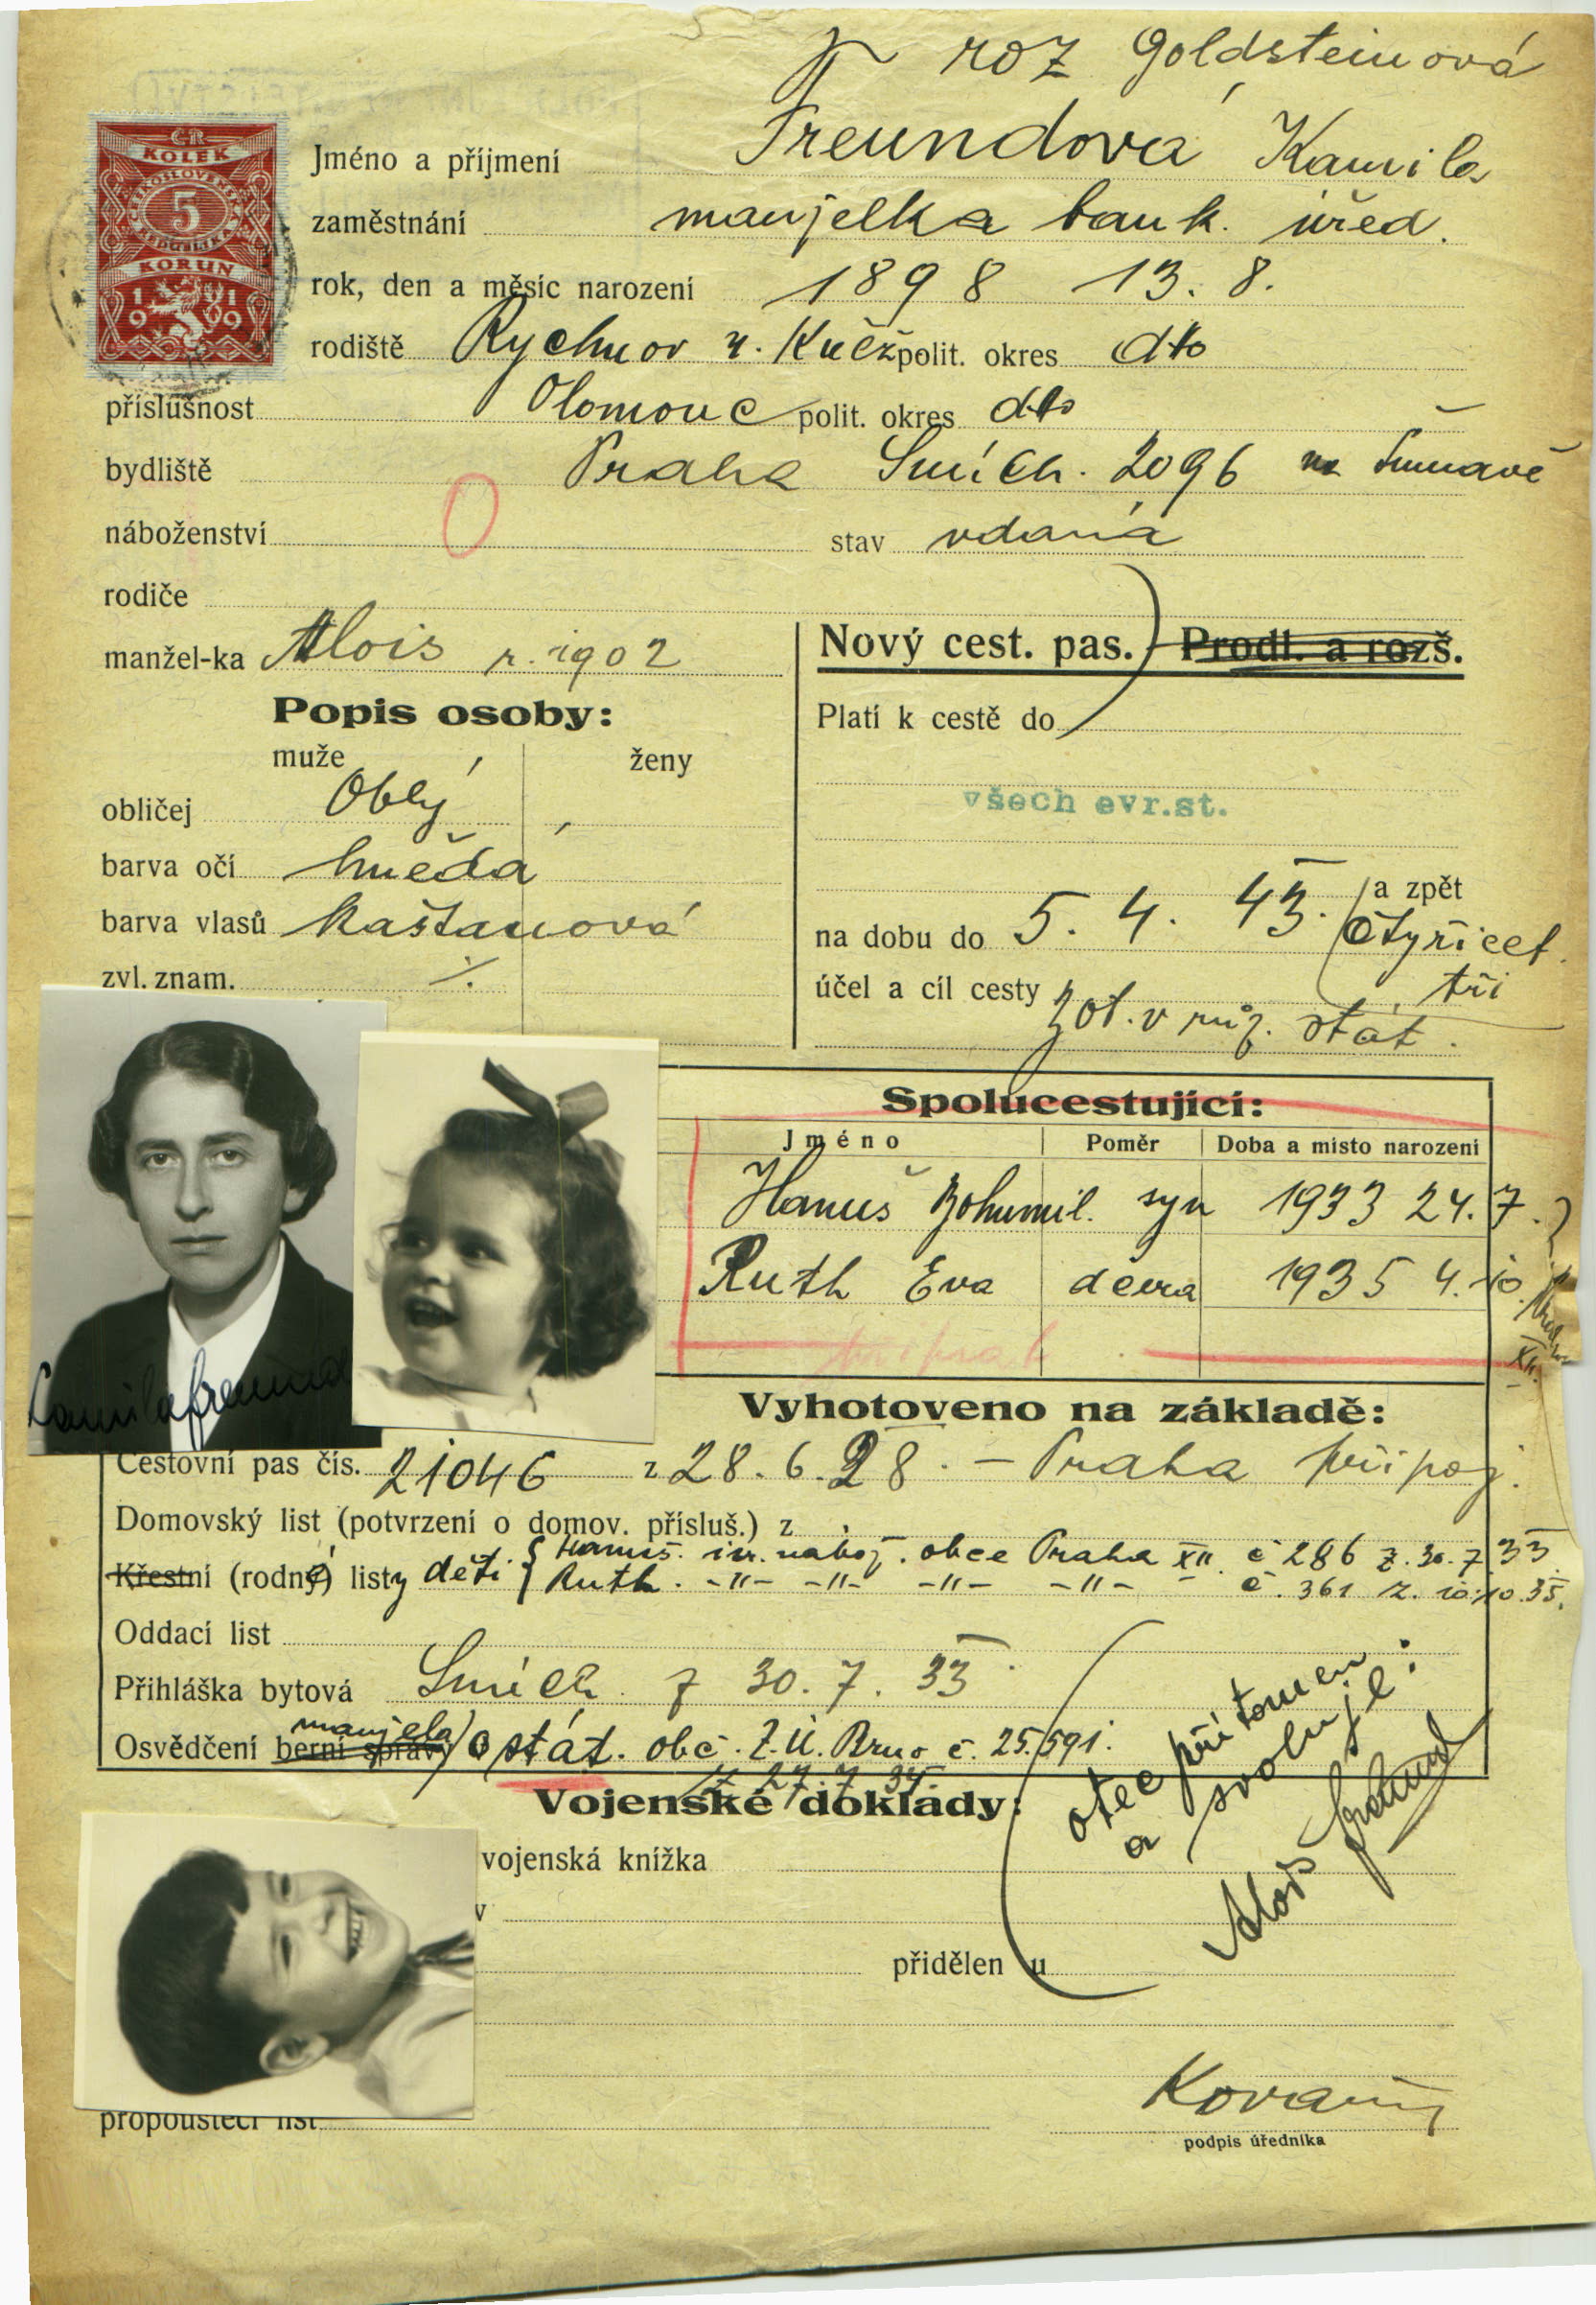 roz Goldsteinová
ČR
KOLEK
ČESKOSLOVENSKÁ
5
REPUBLIKA
KORUN
1919
Jméno a příjmení Freundová Kamila
zaměstnání manželka bank. úřed.
rok, den a měsíc narození 1898 13. 8.
rodiště Rychnov n. Kněž polit. okres dto
příslušnost Olomouc polit. okres dto
bydliště Praha Smích. 2096 na
náboženství 0 stav vdaná
rodiče
manžel-ka Alois r. 1902
Nový cest. pas. Prodl. a rozš.
Popis osoby:
Platí k cestě do
muže ženy
všech evr.st.
obličej Oblý
barva očí hnědá
barva vlasů kaštanová
zvl. znam. ·/.
a zpět
na dobu do 5. 4. 43. čtyřicet
tři
účel a cíl cesty zot. v růz. stát.
Spolucestující:
Jméno Poměr Doba a místo narození
Hanuš Bohumil. syn 1933 24. 7.
Ruth Eva dcera 1935 4. 10.
XII.
Kamila Freund
Vyhotoveno na základě:
Cestovní pas čís. 21046 z 28. 6. 28. – Praha připoj.
Domovský list (potvrzení o domov. přísluš.) z
Křestní (rodné) listy dětí { Hanuš. isr. nábož. obce Praha XII. č 286 z. 30. 7 33.
Ruth. -"- -"- -"- -"- č. 361 z. 10. 10. 35.
Oddací list
Přihláška bytová Smích z 30. 7. 33
Osvědčení berní správy manžela o stát. obč. Z.Ú. Brno č. 25.591.
z 27. 7 34.
otec přítomen
a svoluje:
Alois Freund
Vojenské doklady:
vojenská knížka
v
přidělen u
propouštěcí list
podpis úředníka